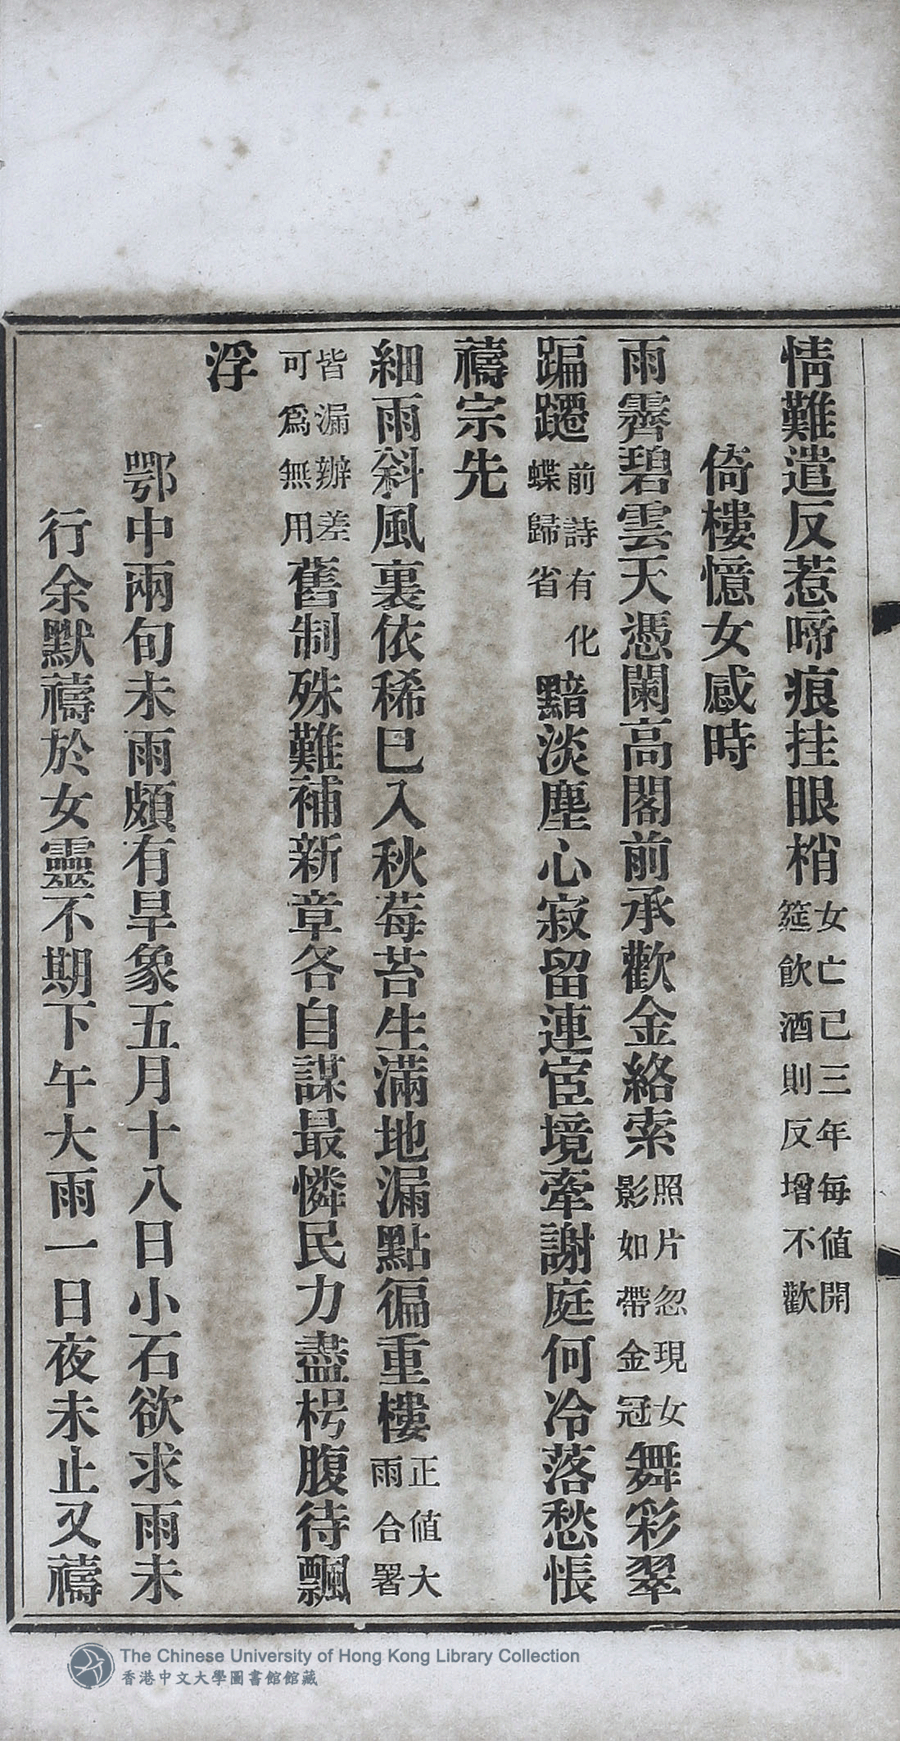 情難遣反惹啼痕挂眼梢女亡已三年每值開筵飲酒則反增不歡
倚樓憶女感時
雨霽碧雲天憑闌高閣前承歡金絡索照片忽現女影如帶金冠舞彩翠
蹁躚前詩有化蝶歸省黯淡塵心寂留連宦境牽謝庭何冷落愁悵
禱宗先
細雨斜風裏依稀已入秋莓苔生滿地漏點徧重樓正值大雨合署
皆漏辦差可爲無用舊制殊難補新章各自謀最憐民力盡枵腹待飄
浮
鄂中兩旬未雨頗有旱象五月十八日小石欲求雨未
行余默禱於女靈不期下午大雨一日夜未止又禱
The Chinese University of Hong Kong Library Collection
香港中文大學圖書館館藏